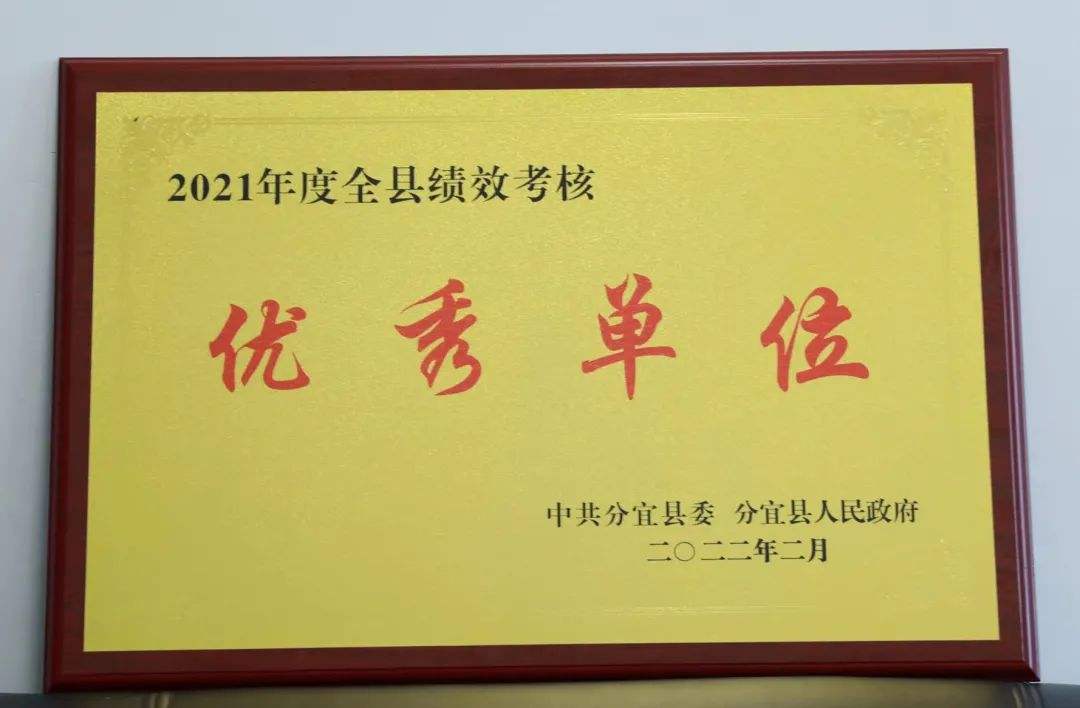 2021年度全县绩效考核
优秀单位
中共分宜县委 分宜县人民政府
二〇二二年二月